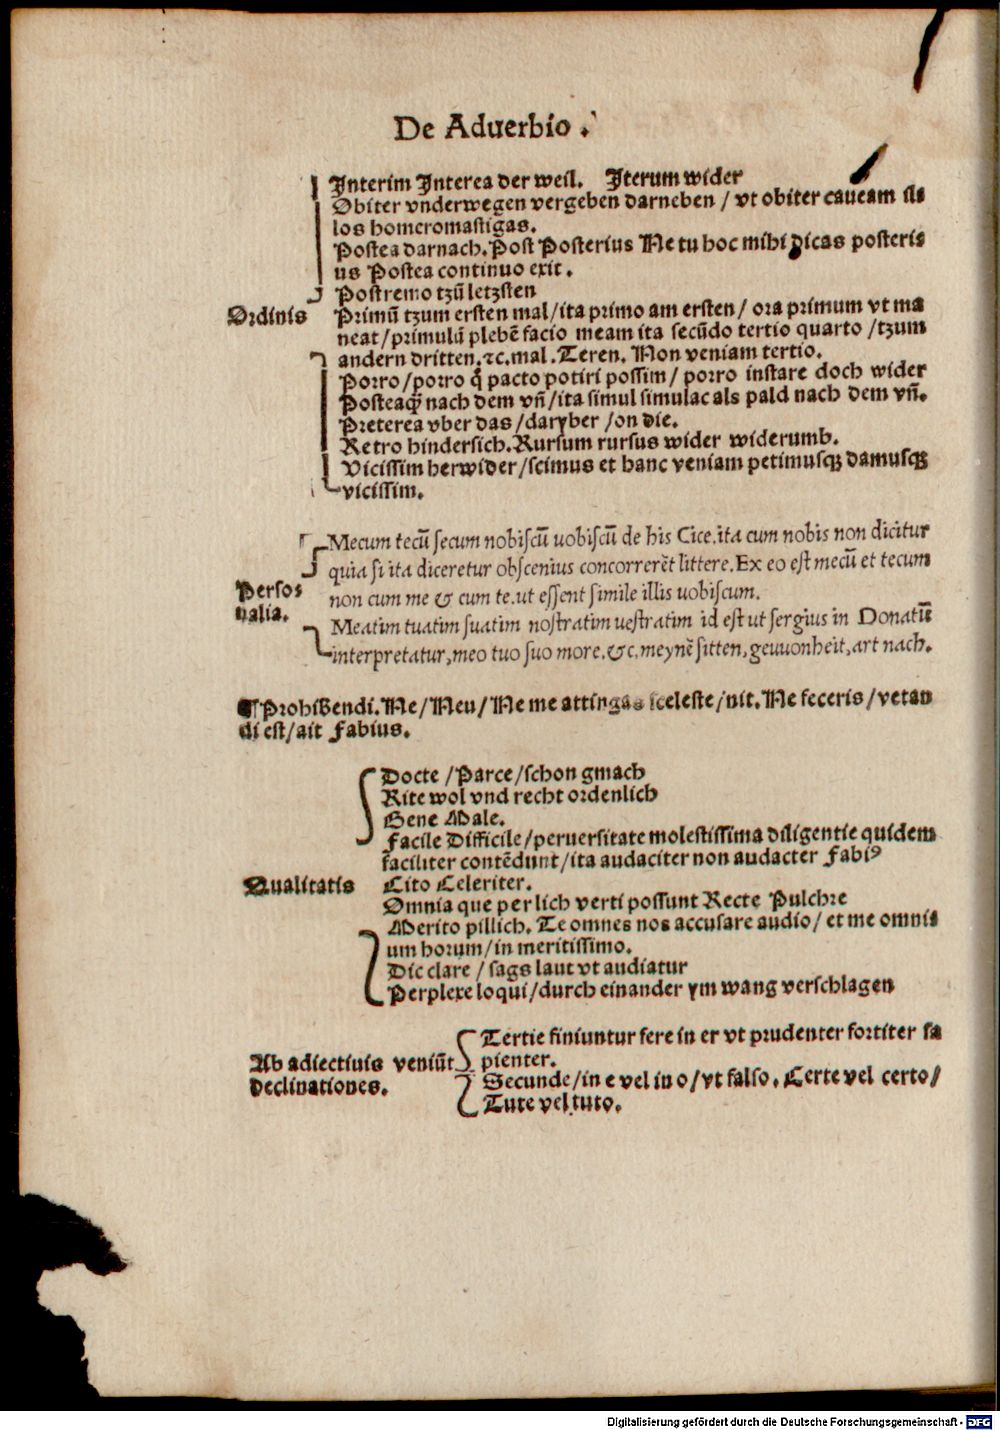 De Aduerbio .
Interim Interea der weil. Iterum wider
Obiter vnderwegen vergeben darneben / vt obiter caueam il⸗
los homeromastigas.
Postea darnach. Post Posterius Ne tu hoc mihi dicas posteri⸗
us Postea continuo exit .
Postremo tzū letzsten
Ordinis Primū tzum ersten mal/ita primo am ersten / ora primum vt ma
neat/primulū plebē facio meam ita secūdo tertio quarto /tzum
andern dritten.⁊c.mal. Teren. Non veniam tertio.
Porro /porro q̄ pacto potiri possim / porro instare doch wider
Posteaq̄ nach dem vn̄ /ita simul simulac als pald nach dem vn̄.
Preterea vber das /daryber /on die.
Retro hindersich. Rursum rursus wider widerumb.
Vicissim herwider /scimus et hanc veniam petimusqꝫ damusqꝫ
vicissim.
Mecum tecū secum nobiscū uobiscū de his Cice.ita cum nobis non dicitur
quia si ita diceretur obscenius concorrerēt littere. Ex eo est mecū et tecum
Perso⸗
nalia.
non cum me & cum te.ut essent simile illis uobiscum.
Meatim tuatim suatim nostratim uestratim id est ut sergius in Donatū
interpretatur, meo tuo suo more.&c.meynē sitten, geuuonheit, art nach.
¶ Prohibendi. Ne/Neu/Ne me attingas sceleste /nit. Ne feceris /vetan
di est/ait Fabius.
Docte /Parce /schon gmach
Rite wol vnd recht ordenlich
Bene Male.
Facile Difficile /peruersitate molestissima diligentie quidem
faciliter contēdunt /ita audaciter non audacter Fabiꝰ
Qualitatis Cito Celeriter.
Omnia que per lich verti possunt Recte Pulchre
Merito pillich. Te omnes nos accusare audio / et me omni⸗
um horum/in meritissimo.
Dic clare / sags laut vt audiatur
Perplexe loqui /durch einander ym wang verschlagen
Tertie finiuntur fere in er vt prudenter fortiter sa
Ab adiectiuis veniūt pienter.
declinationes. Secunde /in e vel in o /vt falso. Certe vel certo/
Tute vel tuto.
Digitalisierung gefördert durch die Deutsche Forschungsgemeinschaft - DFG